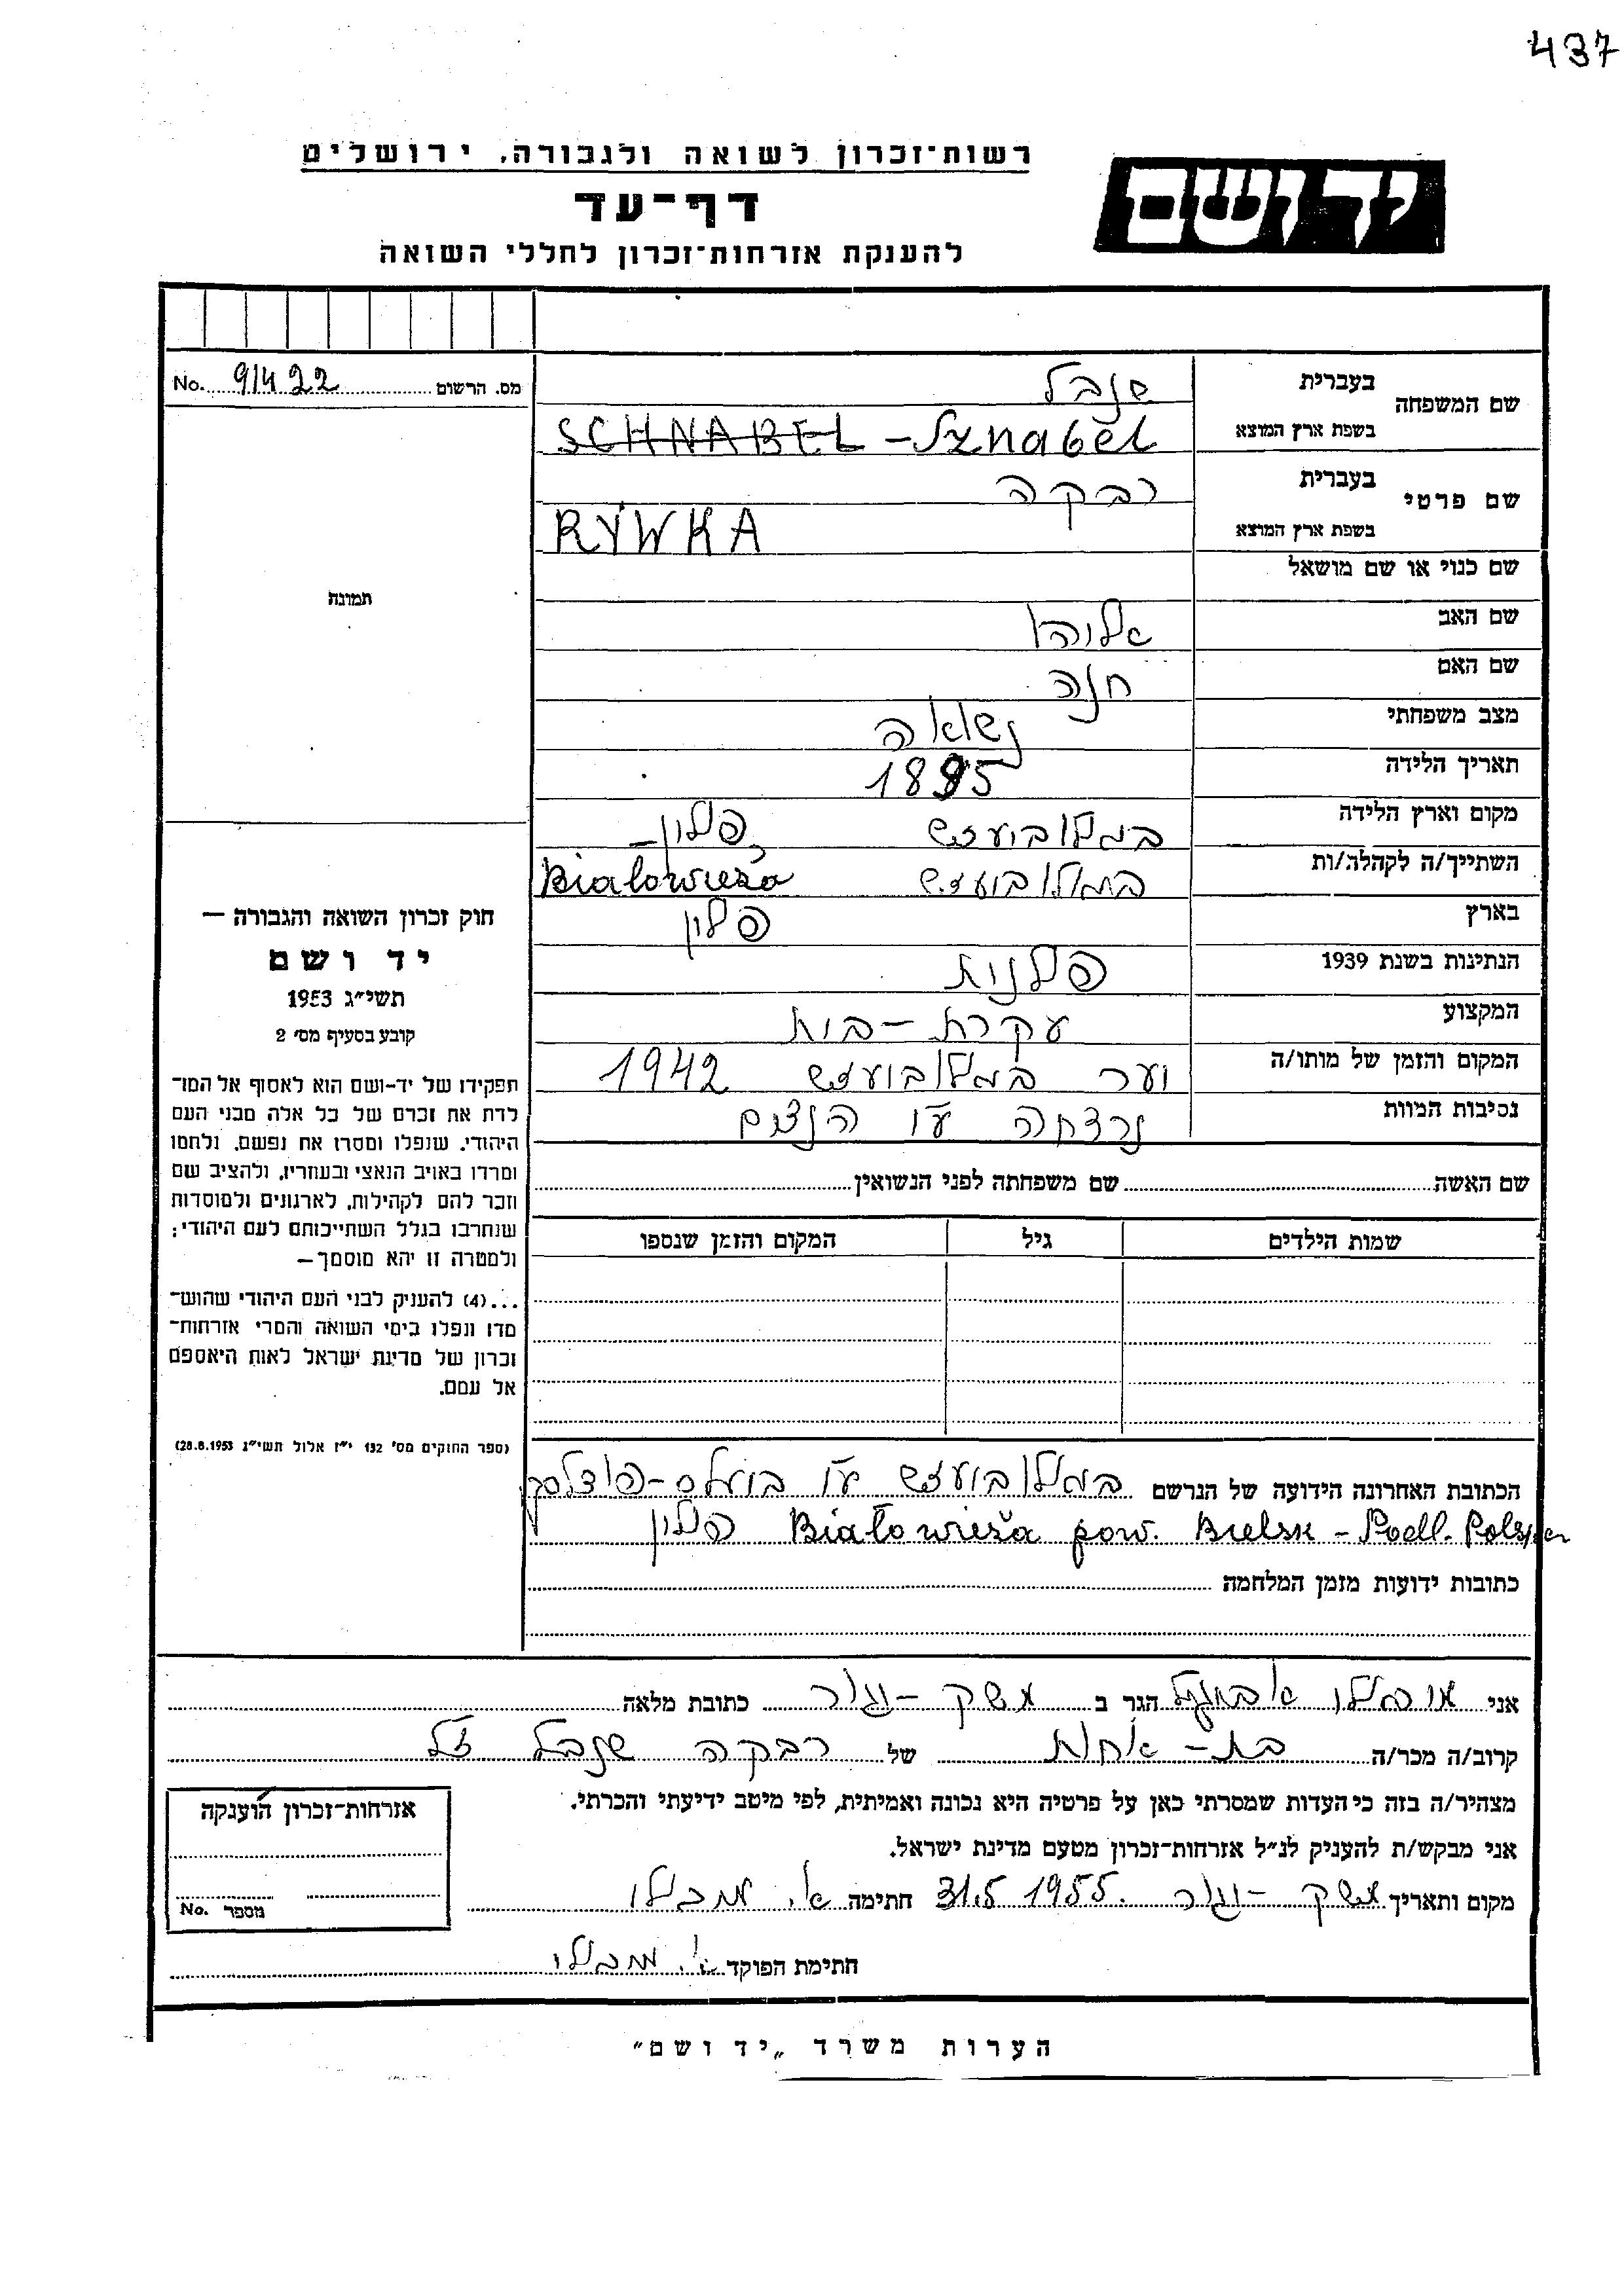 437
רשות־זכרון לשואה ולגבורה, ירושלים
יד ושם
דף־עד
להענקת אזרחות־זכרון לחללי השואה
No. 91422 מס. הרשום
תמונה
שם המשפחה בעברית שנבל
בשפת ארץ המוצא SCHNABEL - Sznabel
שם פרטי בעברית רבקה
בשפת ארץ המוצא RYWKA
שם כנוי או שם מושאל
שם האב אליהו
שם האם חנה
מצב משפחתי נשואה
תאריך הלידה 1895
מקום וארץ הלידה פולין
השתייך/ה לקהלה/ות Białowieża
בארץ פולין
הנתינות בשנת 1939 פולנית
המקצוע עקרת-בית
המקום והזמן של מותו/ה יער 1942
נסיבות המוות נרצחה ע"י הנצים
חוק זכרון השואה והגבורה —
יד ושם
תשי״ג 1953
קובע בסעיף מס׳ 2
תפקידו של יד-ושם הוא לאסוף אל המו־
לדת את זכרם של כל אלה מבני העם
היהודי, שנפלו ומסרו את נפשם, נלחמו
ומרדו באויב הנאצי ובעוזריו, ולהציב שם
וזכר להם לקהילות, לארגונים ולמוסדות
שנחרבו בגלל השתייכותם לעם היהודי;
ולמטרה זו יהא מוסמך—
...(4) להעניק לבני העם היהודי שהוש־
מדו ונפלו בימי השואה והמרי אזרחות־
זכרון של מדינת ישראל לאות היאספם
אל עמם.
(ספר החוקים מס׳ 132 י״ז אלול תשי״ג 28.8.1953)
שם האשה שם משפחתה לפני הנשואין
שמות הילדים גיל המקום והזמן שנספו
הכתובת האחרונה הידועה של הנרשם
Białowieża pow. Bielsk - Podl. פולין
כתובות ידועות מזמן המלחמה
אני הגר ב משק - יגור כתובת מלאה
קרוב/ה מכר/ה בת - אחות של רבקה שנבל ז"ל
מצהיר/ה בזה כי העדות שמסרתי כאן על פרטיה היא נכונה ואמיתית, לפי מיטב ידיעתי והכרתי.
אני מבקש/ת להעניק לנ״ל אזרחות־זכרון מטעם מדינת ישראל.
מקום ותאריך משק - יגור 31.5 1955. חתימה
חתימת הפוקד
אזרחות־זכרון הוענקה
No. מספר
הערות משרד „יד ושם״